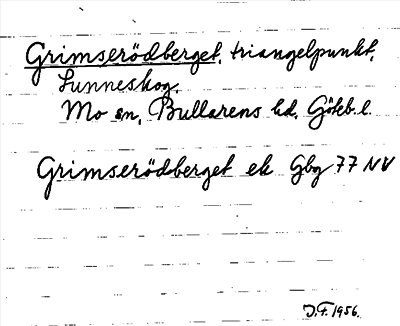 Grimserödberget, triangelpunkt,
Sunneskog.
Mo sn, Bullarens hd. Göteb. l.
Grimserödberget ek Gbg 77 NV
J.F. 1956.